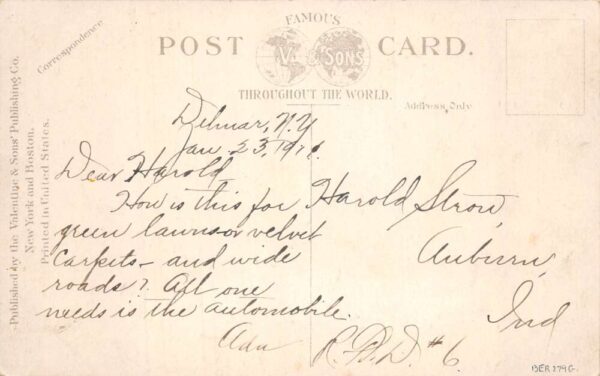 FAMOUS
POST CARD.
V. & SONS
THROUGHOUT THE WORLD.
Correspondence
Address Only
Published by the Valentine & Sons' Publishing Co.
New York and Boston.
Printed in United States.
Delmar, N.Y
Jan. 23, 191
Dear Harold
How is this for
green lawns or velvet
carpets - and wide
roads? All one
needs is the automobile.
Harold Strow,
Auburn,
Ind
R.F.D. #6
BER279G.